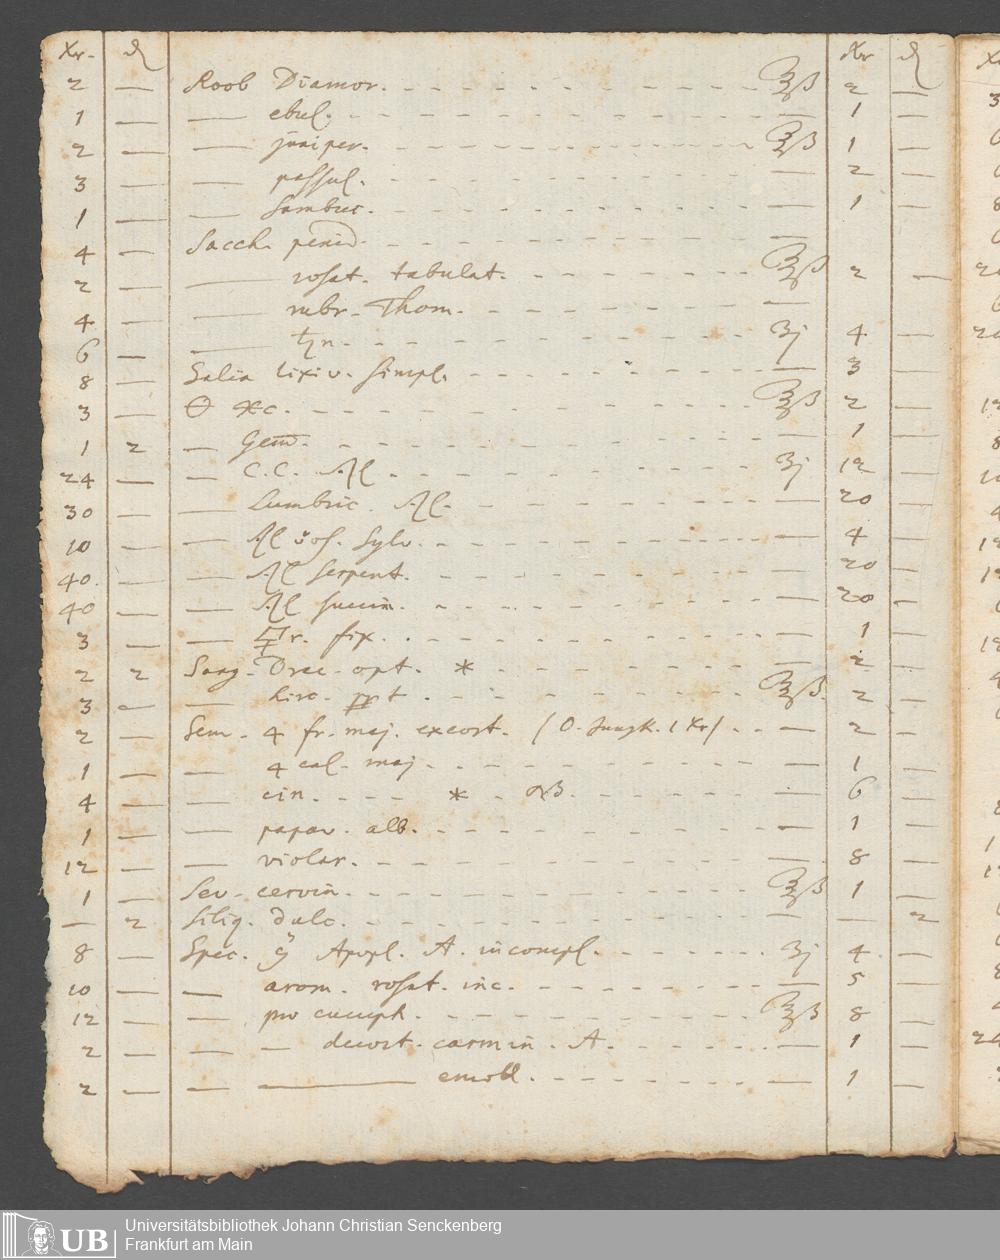 Xr. ₰ Xr ₰
2 — Roob Diamor. ℥ß 2 —
1 — — ebul. — 1 —
2 — — juniper. ℥ß 1 —
3 — — passul. — 2 —
1 — — Sambuc. — 1 —
4 — Sacch. penid. —
2 — — rosat. tabulat. ℥ß 2 —
4 — — rubr. Thom. —
6 — — ʒj 4 —
8 — Salia lixiv. simpl. — 3 —
3 — ℥ß 2 —
1 2 — Gem. — 1 —
24 — — C.C. ʒj 12 —
30 — — Lumbric. — 20 —
10 — — Sylv. — 4 —
40. — — serpent. — 20 —
40 — — succin. — 20 —
3 — — fix. — 1 —
2 2 Sang. Drac. opt. * — 2 —
3 — — hirc. ppt. ℥ß. 2 —
2 — Sem. 4 fr. maj. excort. — 2 —
1 — — 4 cal. maj. — 1 —
4 — — cin. * — 6 —
1 — — papav. alb. — 1 —
12 — — violar. — 8 —
1 — Sev. cervin. ℥ß 1 —
— 2 Siliq. dulc. — — 2
8 — Spec. Apopl. A. incompl. ʒj 4 —
10 — — arom. rosat. inc. — 5 —
12 — — pro cucuph. ℥ß 8 —
2 — — — decoct. carmin. A. — 1 —
2 — — — emoll. — 1 —
Universitätsbibliothek Johann Christian Senckenberg
Frankfurt am Main
UB